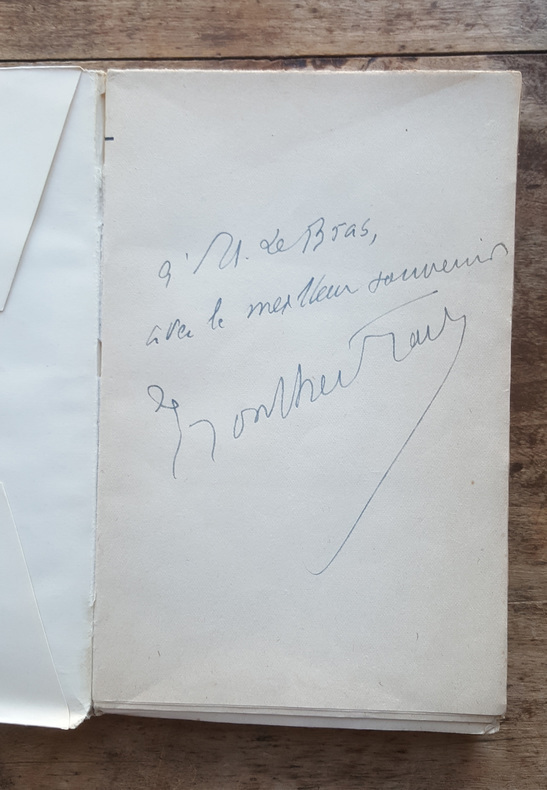 à M. Le Bras,
avec le meilleur souvenir
Montherlant